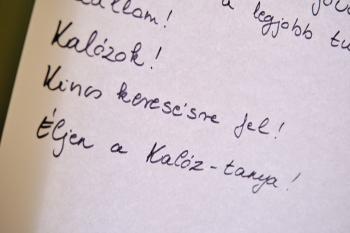 a legjobb
Kalózok!
Kincs keresésre fel!
Éljen a Kalóz-tanya!